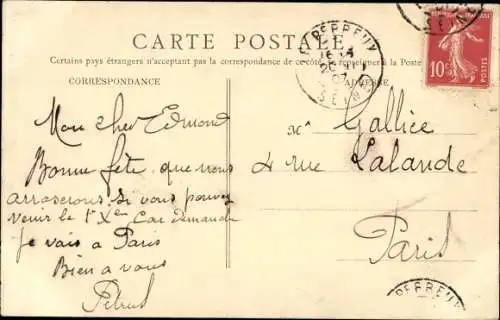 CARTE POSTALE
Certains pays étrangers n'acceptant pas la correspondance de ce côté, se renseigner à la Poste
CORRESPONDANCE
ADRESSE
LE PERREUX
SEINE
10c
Mon cher Edmond
Bonne fête que nous
arroserons si vous pouvez
venir le 1er Xbre Car demande
je vais à Paris
Bien à vous
Petrus
Mr Gallice
4 rue Lalande
Paris
PERREUX